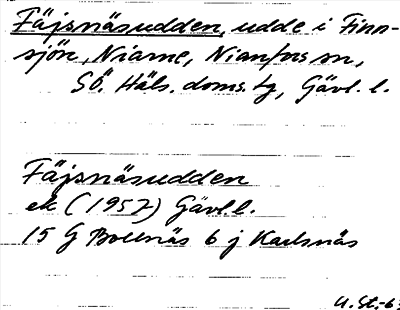 Fäjsnäsudden, udde i Finn-
sjön, Niame, Nianfors sn,
SÖ. Häls. doms. tg, Gävl. l.
Fäjsnäsudden
ek (1957) Gävl. l.
15 G Bollnäs 6 j Karlsnäs
U. St. -63